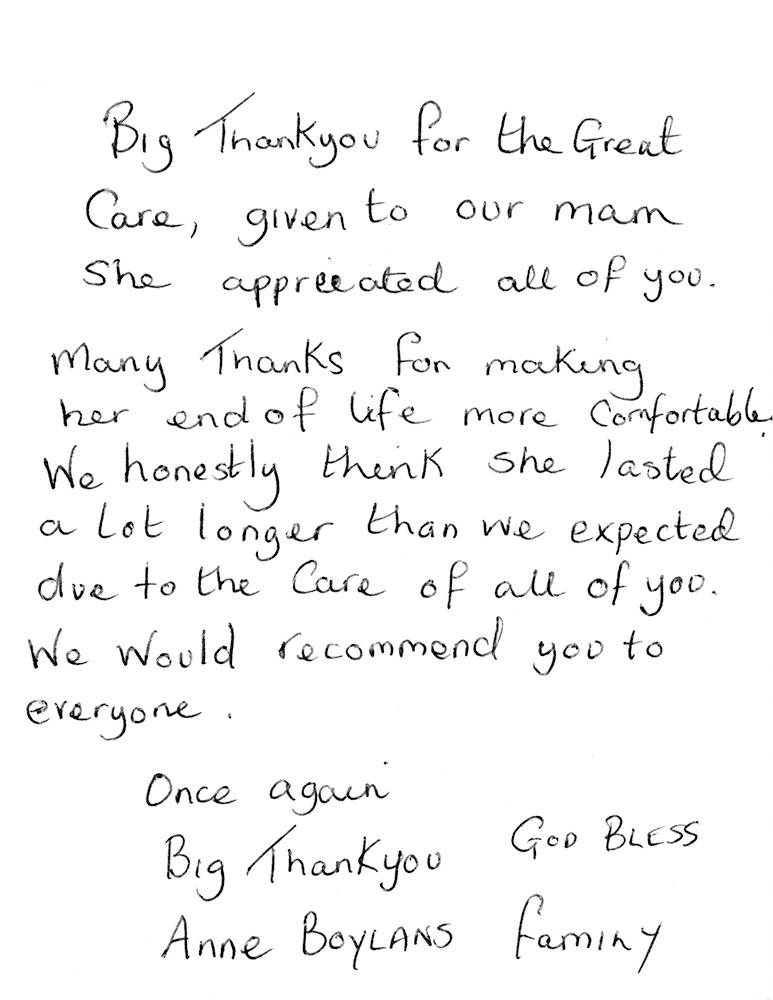 Big Thankyou for the Great
Care, given to our mam
She appreeated all of you.
Many Thanks for making
her end of life more Comfortable.
We honestly think she lasted
a lot longer than we expected
due to the Care of all of you.
We would recommend you to
everyone.
Once again
Big Thankyou
GOD BLESS
Anne BOYLANS faminy